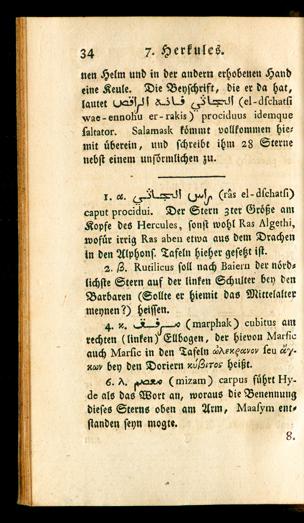 34 7. Herkules.
nen Helm und in der andern erhobenen Hand
eine Keule. Die Beyschrift, die er da hat,
lautet الجاثي فانه الراقص (el-dschatsi
wae-ennohu er-rakis) prociduus idemque
saltator. Salamask kömmt vollkommen hie-
mit überein, und schreibt ihm 28 Sterne
nebst einem unförmlichen zu.
1. α. راس الجاثي (râs el-dschatsi)
caput procidui. Der Stern 3ter Größe am
Kopfe des Hercules, sonst wohl Ras Algethi,
wofür irrig Ras aben etwa aus dem Drachen
in den Alphons. Tafeln hieher gesetzt ist.
2. β. Rutilicus soll nach Baiern der nörd-
lichste Stern auf der linken Schulter bey den
Barbaren (Sollte er hiemit das Mittelalter
meynen?) heissen.
4. κ. مرفق (marphak) cubitus am
rechten (linken) Ellbogen, der hievon Marfic
auch Marsic in den Tafeln ὠλεκρανον seu ἄγ-
κων bey den Doriern κύβιτος heißt.
6. λ. معصم (mizam) carpus führt Hy-
de als das Wort an, woraus die Benennung
dieses Sterns oben am Arm, Maasym ent-
standen seyn mogte.
8.